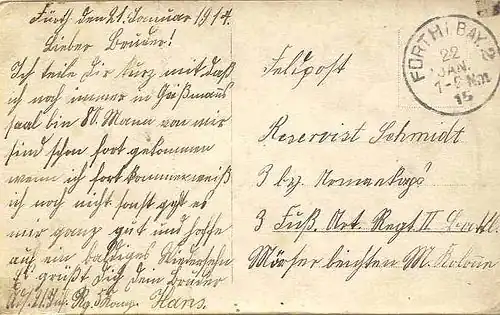 Fürth den 21. Januar 1914.
Lieber Bruder!
Ich teile dir kurz mit daß
ich noch immer in Geißmann
saal bin 80. Mann von wir
sind schon fort gekommen
wenn ich fort komme weiß
ich noch nicht sonst geht es
mir ganz gut und hoffe
auf ein baldiges Wiedersehn
Es grüßt dich dein Bruder
Hans.
Feldpost
FÜRTH i. BAY. 2
22
JAN.
15
Reservist Schmidt
3
3 Fuß. Art. Regt. II Batl.
Mörser leichten M. Kolone